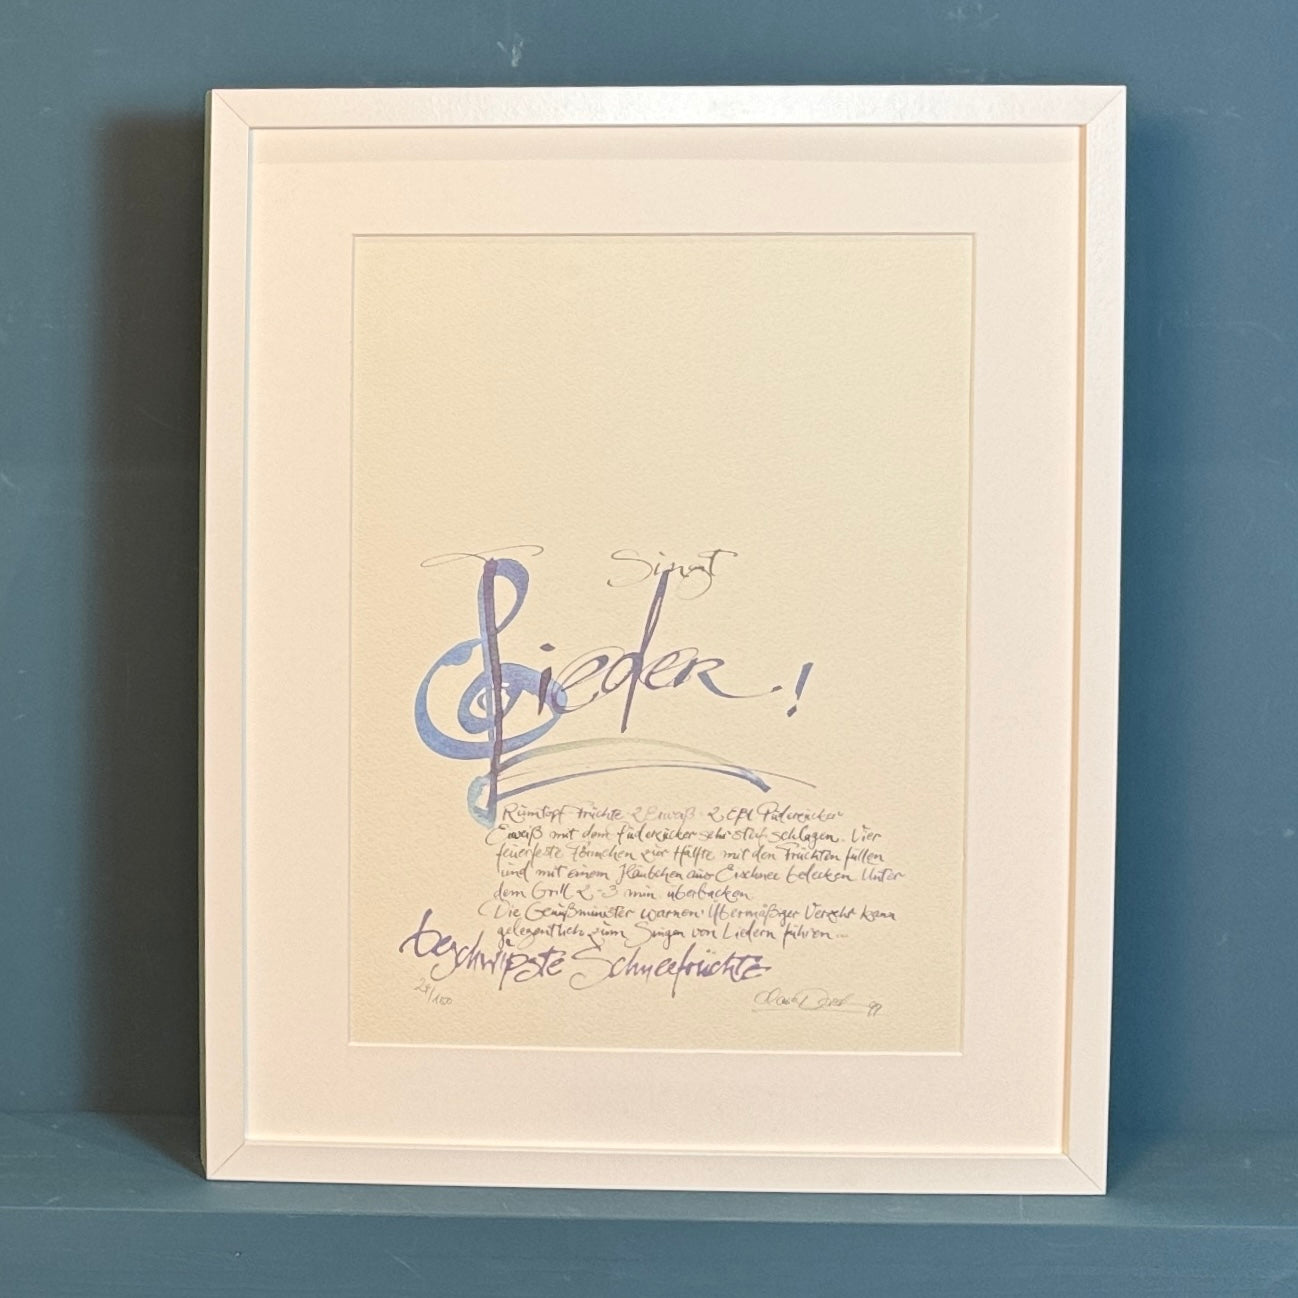 Singt
Lieder!
Rumtopf-Früchte · 2 Eiweiß · 2 EßL Puderzucker
Eiweiß mit dem Puderzucker sehr steif schlagen. Vier
feuerfeste Förmchen zur Hälfte mit den Früchten füllen
und mit einem Häubchen aus Eischnee bedecken. Unter
dem Grill 2-3 min. überbacken.
Die Genußminister warnen: Übermäßiger Verzehr kann
gelegentlich zum Singen von Liedern führen...
beschwipste Schneefrüchte
/100
99